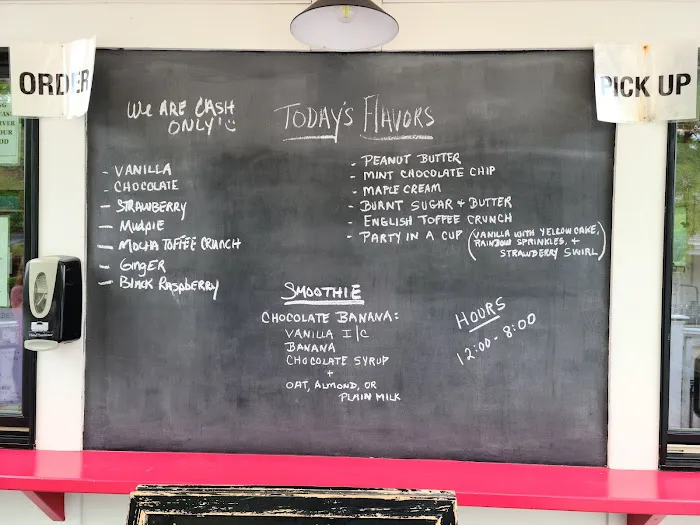 ORDER
PICK UP
WE ARE CASH
ONLY!
TODAY'S FLAVORS
- VANILLA
- CHOCOLATE
- STRAWBERRY
- MUDPIE
- MOCHA TOFFEE CRUNCH
- GINGER
- BLACK RASPBERRY
- PEANUT BUTTER
- MINT CHOCOLATE CHIP
- MAPLE CREAM
- BURNT SUGAR + BUTTER
- ENGLISH TOFFEE CRUNCH
- PARTY IN A CUP (VANILLA WITH YELLOW CAKE,
RAINBOW SPRINKLES, +
STRAWBERRY SWIRL)
SMOOTHIE
CHOCOLATE BANANA:
VANILLA I/C
BANANA
CHOCOLATE SYRUP
+
OAT, ALMOND, OR
PLAIN MILK
HOURS
12:00 - 8:00